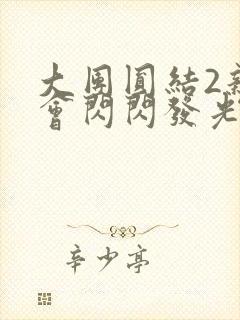 大团圓結2新
會閃閃發光
辛少亭